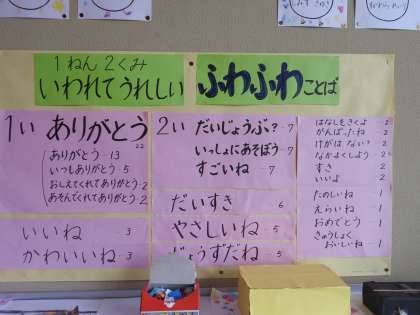 1ねん2くみ
いわれてうれしい ふわふわことば
1い ありがとう 22
ありがとう - 13
いつもありがとう - 5
おしえてくれてありがとう 2
あそんでくれてありがとう 2
いいね - 3
かわいいね - 3
2い だいじょうぶ? - 7
いっしょにあそぼう - 7
すごいね - 7
だいすき 6
やさしいね - 5
じょうずだね - 5
はなしをきくよ - 2
がんばったね - 2
けがはない? - 2
なかよくしよう - 2
すき - 2
いいよ 2
たのしいね - 1
えらいね - 1
おめでとう - 1
きゅうしょく
おいしいね - 1